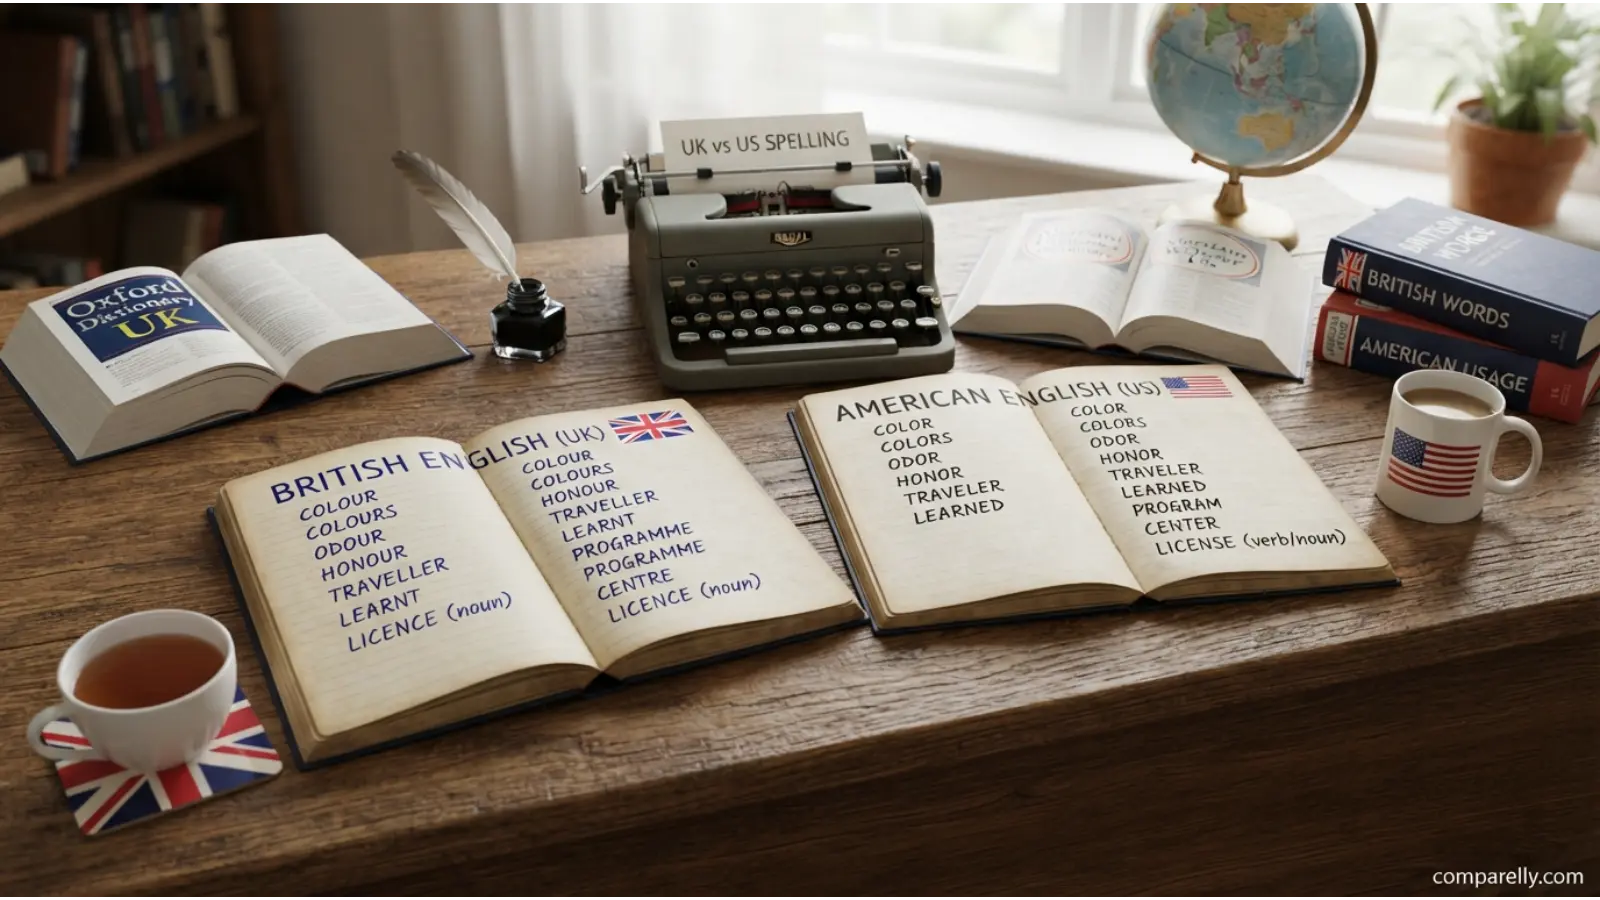 UK vs US SPELLING
Oxford
Dictionary
UK
BRITISH
BRITISH WORDS
AMERICAN USAGE
BRITISH ENGLISH (UK)
COLOUR
COLOURS
ODOUR
HONOUR
TRAVELLER
LEARNT
LICENCE (noun)
COLOUR
COLOURS
HONOUR
TRAVELLER
LEARNT
PROGRAMME
PROGRAMME
CENTRE
LICENCE (noun)
AMERICAN ENGLISH (US)
COLOR
COLORS
ODOR
HONOR
TRAVELER
LEARNED
COLOR
COLORS
ODOR
HONOR
TRAVELER
LEARNED
PROGRAM
CENTER
LICENSE (verb/noun)
comparelly.com